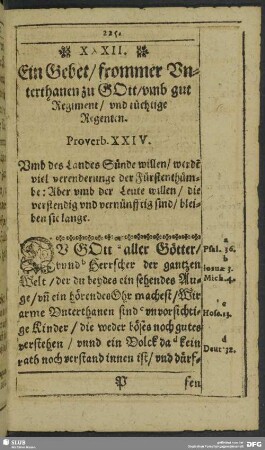 225.
XXXII.
Ein Gebet / frommer Vn-
terthanen zu GOtt / vmb gut
Regiment / vnd tüchtige
Regenten.
Proverb. XXIV.
Vmb des Landes Sünde willen / werdē
viel verenderunge der Fürstenthüm-
be: Aber vmb der Leute willen / die
verstendig vnd vernünfftig sind / blei-
ben sie lange.
DV GOtt a aller Götter /
vnnd b Herrscher der gantzen
Welt / der du beydes ein sehendes Au-
ge / vñ ein hörendes Ohr machest / Wir
arme Vnterthanen sind c vnvorsichti-
ge Kinder / die weder böses noch gutes
verstehen / vnnd ein Volck da d kein
rath noch verstand innen ist / vnd dürf-
P
fen
a
Psal. 36.
b
Iosuæ 3.
Mich. 4.
c
Hose. 13.
d
Deut. 32.
SLUB